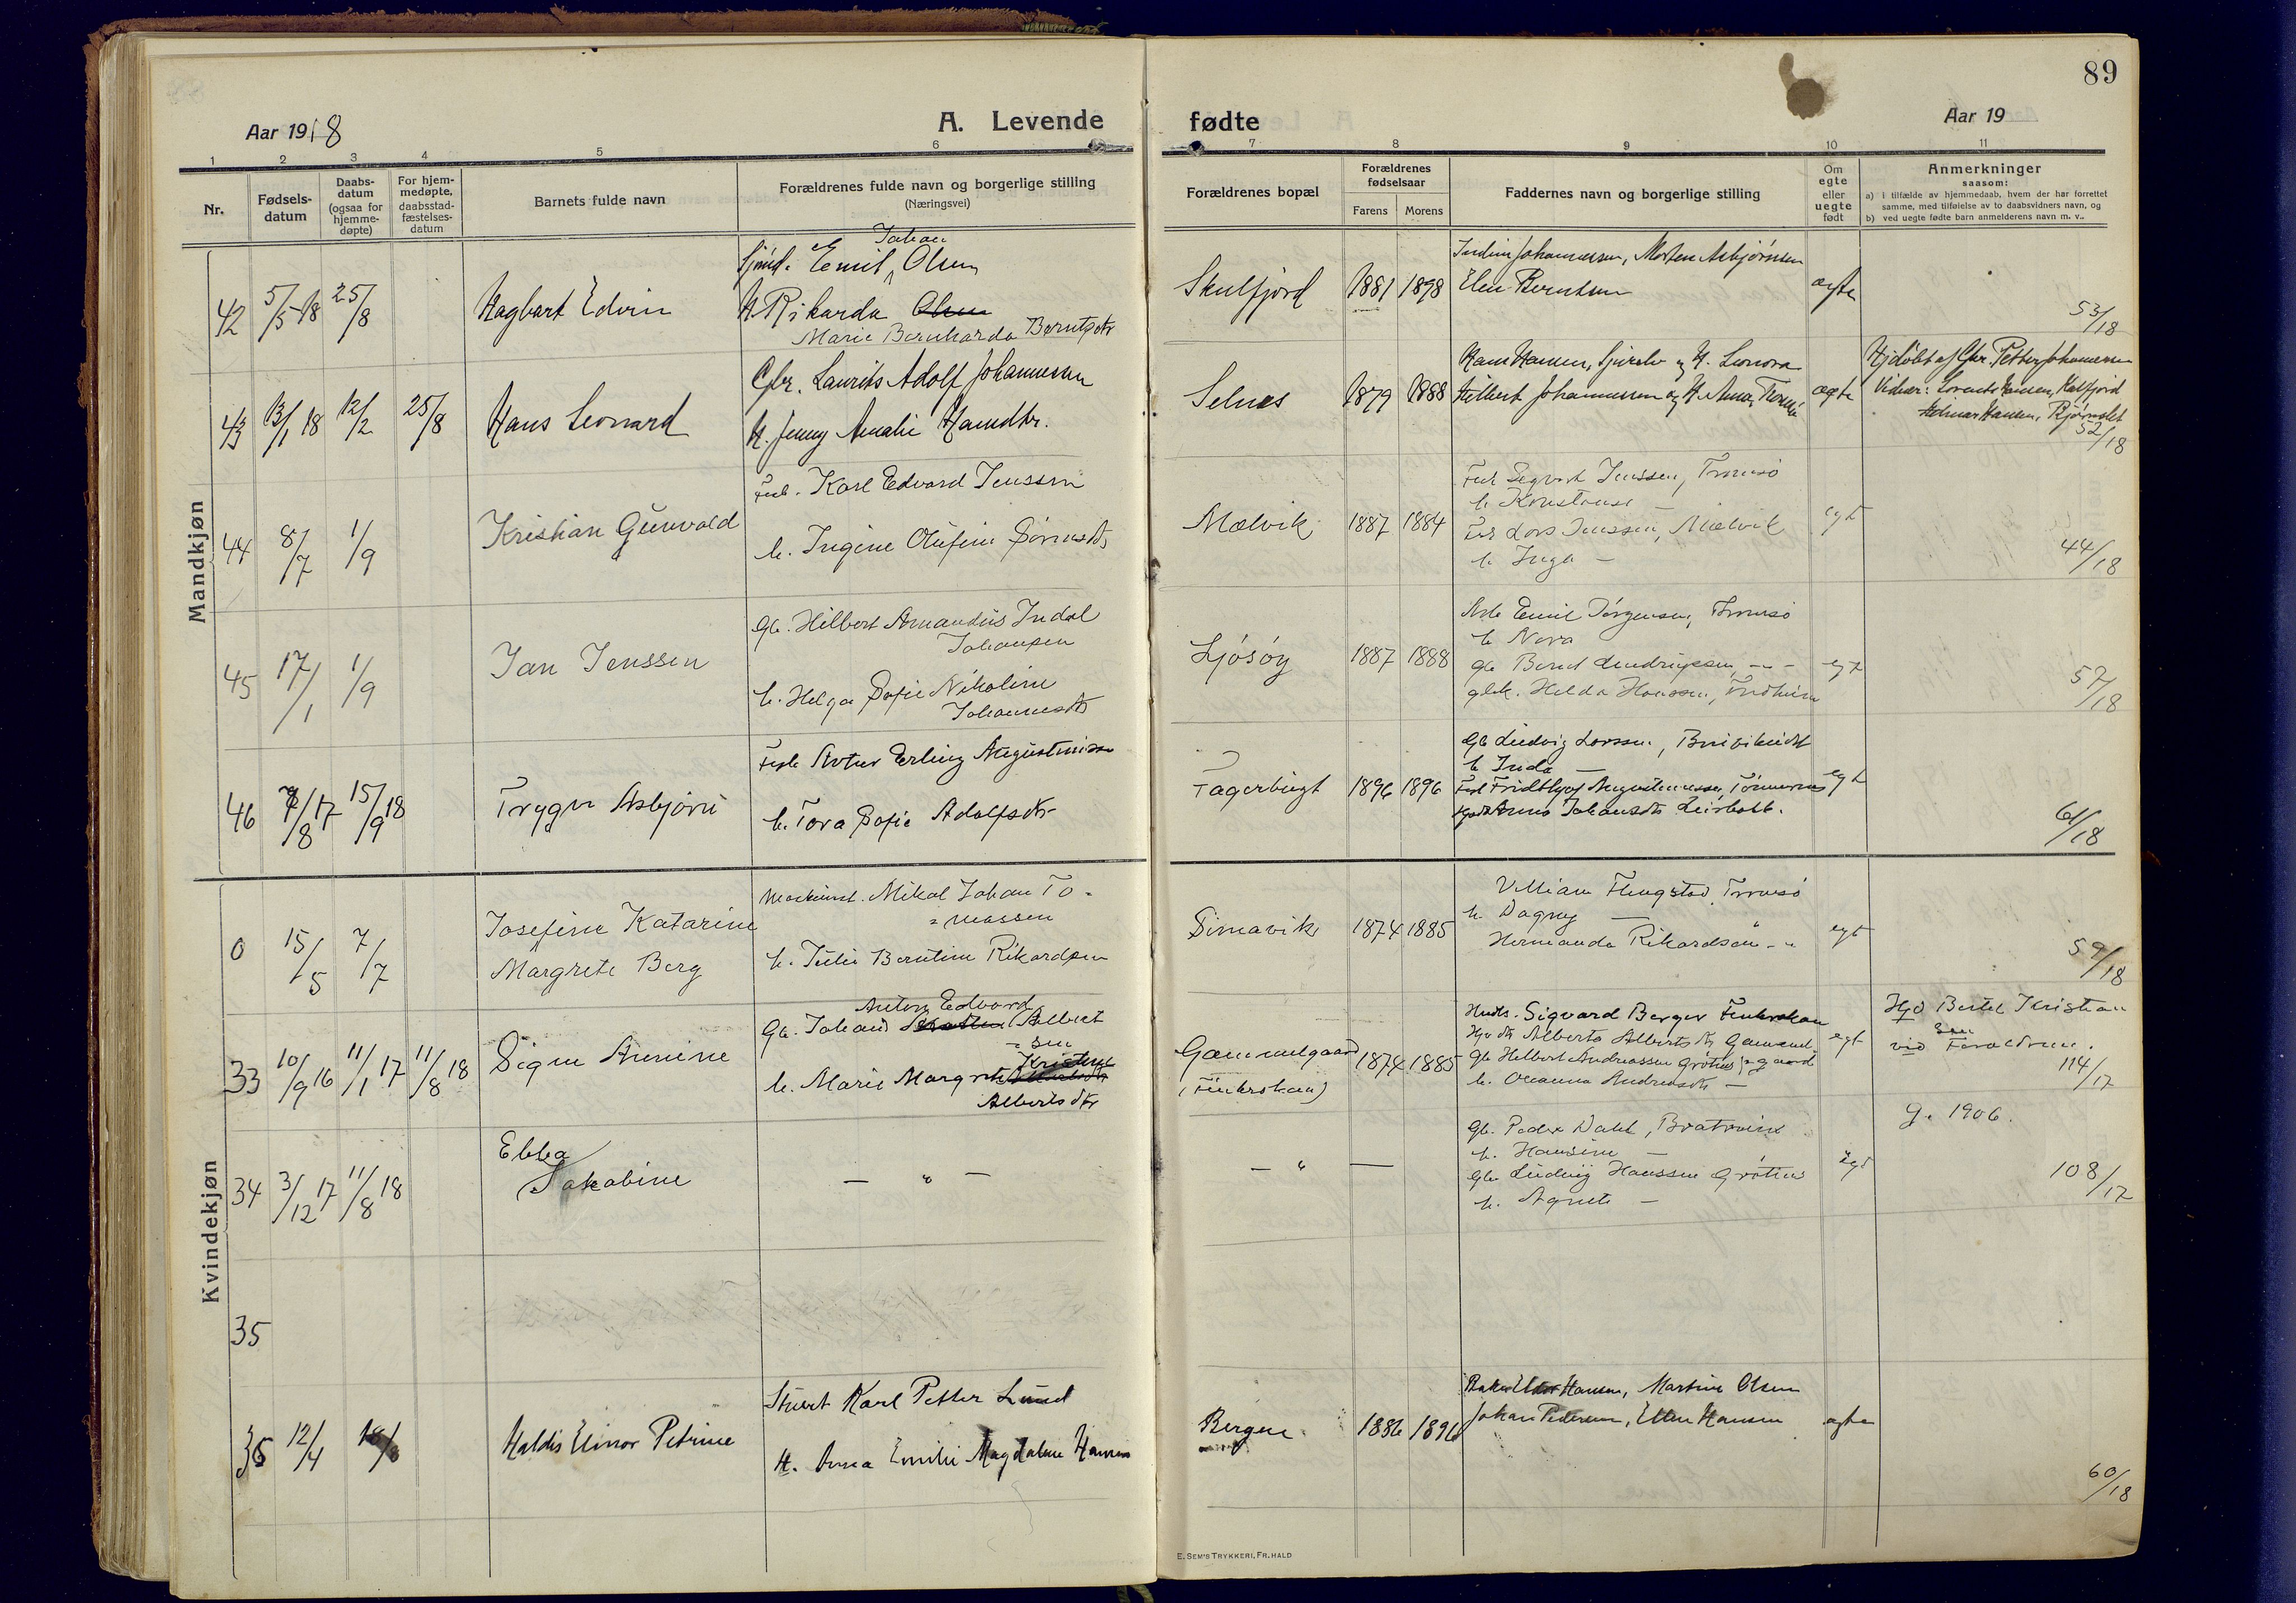 89
Aar 1918
A. Levende fødte
Aar 19
1 2 3 4 5 6 7 8 9 10 11
Nr.
Fødsels-
datum
Daabs-
datum
(ogsaa for
hjemme-
døpte)
For hjem-
medøpte,
daabsstad-
fæstelses-
datum
Barnets fulde navn
Forældrenes fulde navn og borgerlige stilling
(Næringsvei)
Forældrenes bopæl
Forældrenes
fødselsaar
Farens Morens
Faddernes navn og borgerlige stilling
Om
egte
eller
uegte
født
Anmerkninger
saasom:
a) i tilfælde av hjemmedaab, hvem der har forrettet
samme, med tilføielse av to daabsvidners navn, og
b) ved uegte fødte barn anmelderens navn m. v..
Mandkjøn
42 5/5 18 25/8
Hagbart Edvin
Johan
Emil Olsen
H. Rikarda Olsen
Marie Bernharda Berntsdtr
Skulfjord 1881 1898
Johannessen, Morten Asbjørnsen
Elen Berntsen
ægte
53/18
43 13/1 18 12/2 25/8
Hans Leonard
Gbr. Laurits Adolf Johannessen
H. Jenny Amalie Hansdtr.
Selnes 1879 1888
Hans Hansen, og H. Leonora
Hilbert Johannessen og H. Anna,
ægte
Hjdøbt af Gbr. Petter Johannessen
Vidner: Lorents Hansen, Kalfjord
Helmer Hansen, Bjørnslet
52/18
44 8/7 1/9
Kristian Gunvald
Fisk. Karl Edvard Jenssen
h. Ingine Olufine Sørensdtr
Mælvik 1887 1884
Fisk Sigvart Jenssen, Tromsø
h. Konstanse —
Fisk Lars Jenssen, Mælvik
h. Inga —
egt
44/18
45 17/1 1/9
Jan Jenssen
Gb. Hilbert Amandus Indal
Johansen
h. Helga Sofie Nikoline
Johannesdtr
Ljøsøy 1887 1888
Emil Jørgensen, Tromsø
h Nora
gb Bernt Hendriksen —"—
gbk. Helda Hanssen,
egt
57/18
46 7/8 17 15/9 18
Trygve Asbjørn
Fisk Artur Erling Augustinissen
h. Tora Sofie Adolfsdtr
Fagerbugt 1896 1896
Gb Ludvig Larssen,
h Inda —
Fisk Fridthjof Augustinussen,
Anna Johansdtr Leirbott.
egt
61/18
Kvindekjøn
0 15/5 7/7
Josefine Katarine
Margrete Berg
Maskinist. Mikal Johan To-
=massen
h. Julie Berntine Rikardsen
Simavik 1874 1885
Villiam Flengstad, Tromsø
h. Dagny — "
Hermanda Rikardsen — "
egt
59/18
33 10/9 16 11/1 17 11/8 18
Signe Annine
Anton Edvard
Gb. Johan Albert
=sen
h. Marie Margrete Kristine
Albertsdtr
Gammelgaard
(Finkroken)
1874 1885
Sigvard Berger Finkroken
Alberta Albertsdtr Gammel-
Gb Hilbert Andreassen Grøtnes =gaard
h. Oleanna Andreasdtr —
egt
Hjd Bertel Kristian
sen
vid Foræeldrene.
114/17
34 3/12 17 11/8 18
Ebba
Jakobine
— " —
— " —
Gb. Peder Dahl, Bratrein
h. Hansine —
Gb Ludvig Hanssen Grøtnes
h. Agnete —
egt
g. 1906.
108/17
35
36 12/4
Haldis Elinor Petrine
Stuert Karl Petter Lund
H. Anna Emilie Magdalene Hansen
Bergen 1886 1896
Hansen, Martine Olsen
Johan Pedersen, Ellen Hansen
ægte
60/18
E. SEM'S TRYKKERI, FR. HALD